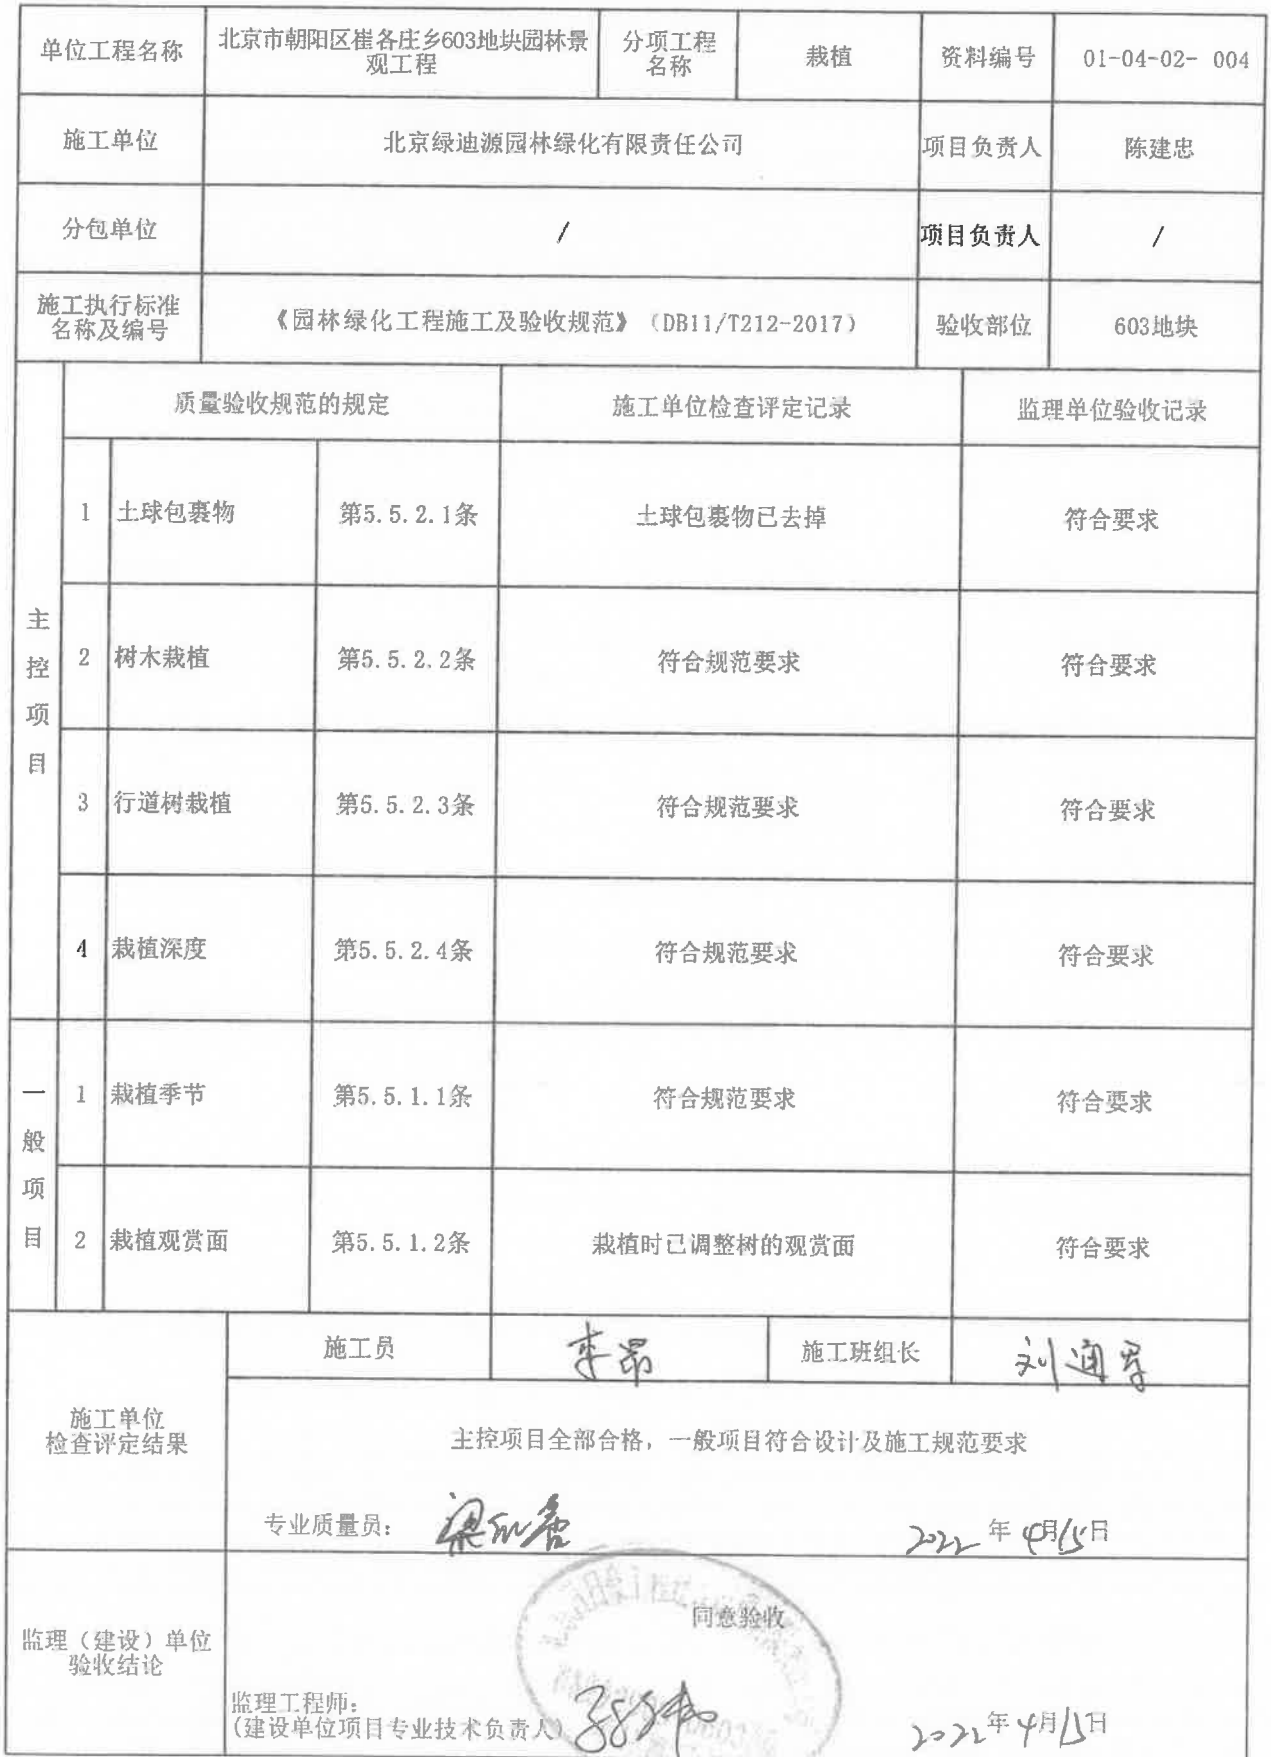 单位工程名称 北京市朝阳区崔各庄乡603地块园林景观工程 分项工程名称 栽植 资料编号 01-04-02- 004
施工单位 北京绿迪源园林绿化有限责任公司 项目负责人 陈建忠
分包单位 / 项目负责人 /
施工执行标准名称及编号 《园林绿化工程施工及验收规范》（DB11/T212-2017） 验收部位 603地块
质量验收规范的规定 施工单位检查评定记录 监理单位验收记录
主控项目
1 土球包裹物 第5.5.2.1条 土球包裹物已去掉 符合要求
2 树木栽植 第5.5.2.2条 符合规范要求 符合要求
3 行道树栽植 第5.5.2.3条 符合规范要求 符合要求
4 栽植深度 第5.5.2.4条 符合规范要求 符合要求
一般项目
1 栽植季节 第5.5.1.1条 符合规范要求 符合要求
2 栽植观赏面 第5.5.1.2条 栽植时已调整树的观赏面 符合要求
施工单位检查评定结果
施工员 李昂 施工班组长 刘
主控项目全部合格，一般项目符合设计及施工规范要求
专业质量员： 2022 年 4月15日
监理（建设）单位验收结论
同意验收
监理工程师：
(建设单位项目专业技术负责人) 2022年4月15日